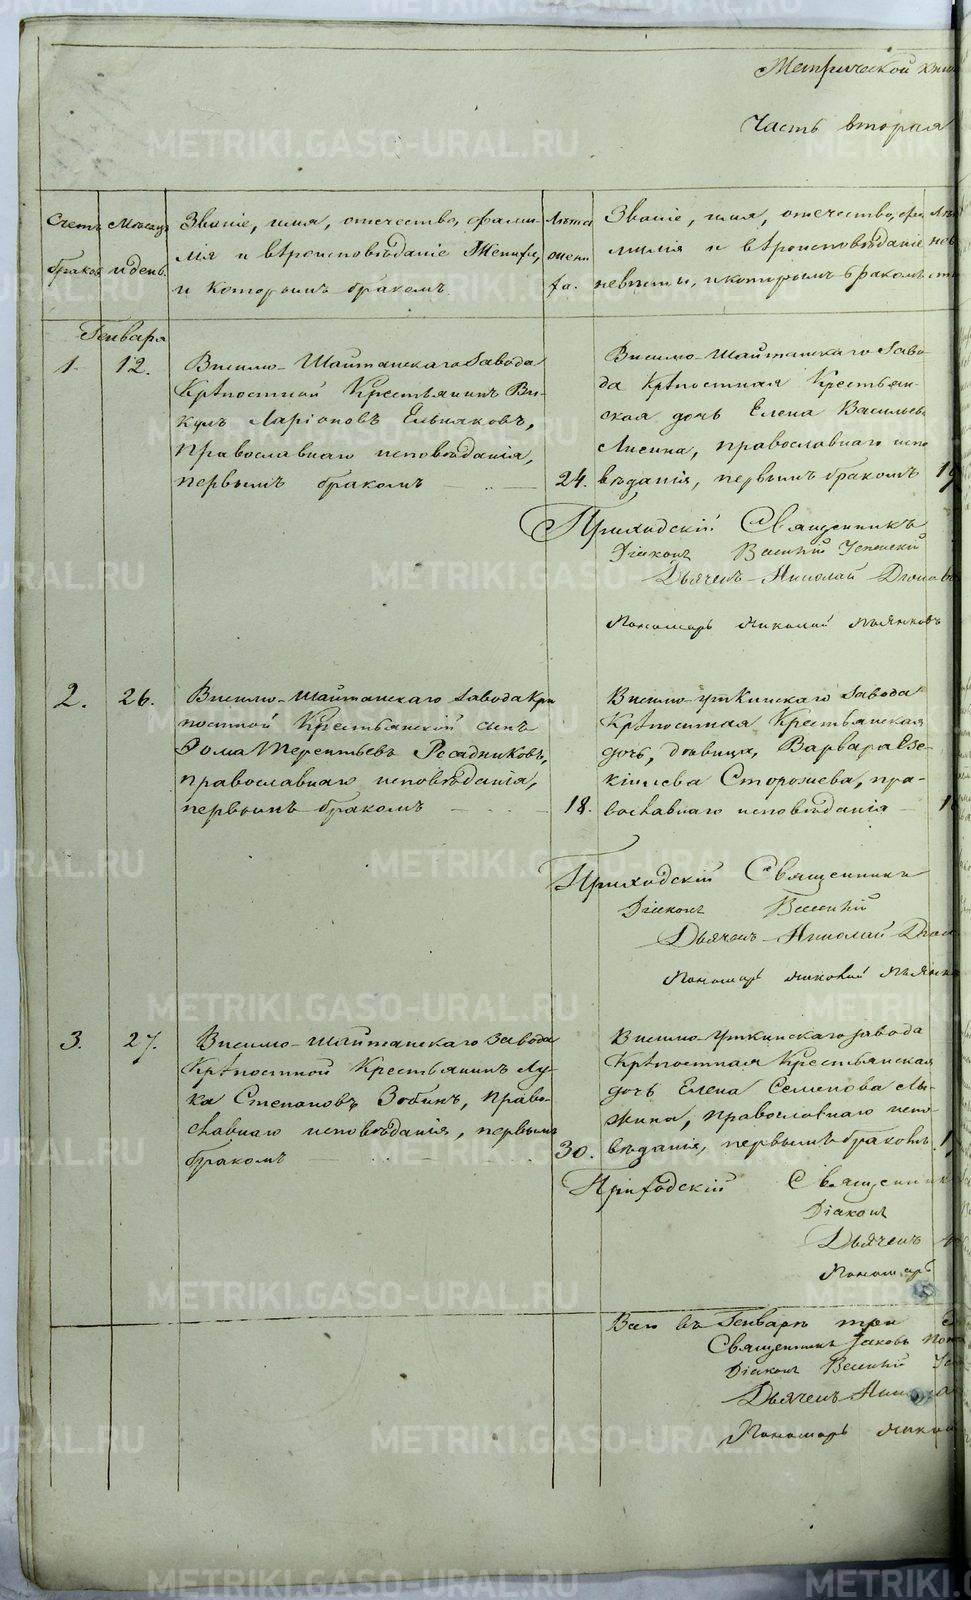 Метрической кни
Часть вторая
Счетъ браков
Мѣсяцъ и день
Званіе, имя, отечество, фами-
лія и вѣроисповѣданіе Жениха,
и которымъ бракомъ
Лѣта жени
ха.
Званіе, имя, отечество, фа
милія и вѣроисповѣданіе
невѣсты, и которымъ бракомъ
Генваря
1. 12.
Висимо-Шайтанскаго Завода
Крѣпостной Крестьянинъ Ви-
кулъ Ларіоновъ Ельняковъ,
православнаго исповѣданія,
первымъ бракомъ
24.
Висимо-Шайтанскаго Заво-
да Крѣпостная Крестьян-
ская дочь Елена Васильев
Лисина, православнаго испо
вѣданія, первымъ бракомъ
19
Приходскій Священникъ
Діаконъ Василій Успенскій
Дьячекъ Николай
Пономарь Николай
2. 26.
Висимо-Шайтанскаго Завода Крѣ
постной Крестьянской сынъ
Фома Терентьевъ Разадниковъ,
православнаго исповѣданія,
первымъ бракомъ
18.
Висимо-Уткинскаго Завода
Крѣпостная Крестьянская
дочь, дѣвица, Варвара Езе-
кіилева Сторожева, пра-
вославнаго исповѣданія
Приходскій Священникъ
Діаконъ Василій
Дьячекъ Николай
Пономарь Николай
3. 27.
Висимо-Шайтанскаго Завода
Крѣпостной Крестьянинъ Лу-
ка Степановъ Зобинъ, право-
славнаго исповѣданія, первымъ
бракомъ
30.
Висимо-Уткинскаго Завода
Крѣпостная Крестьянская
дочь Елена Семенова Лы-
жина, православнаго испо-
вѣданія, первымъ бракомъ.
Приходскій Священник
Діаконъ
Дьячекъ
Пономарь
Всего въ Генварѣ три
Священникъ Іаковъ
Діаконъ Василій
Дьячекъ
Пономарь Никол
METRIKI.GASO-URAL.RU